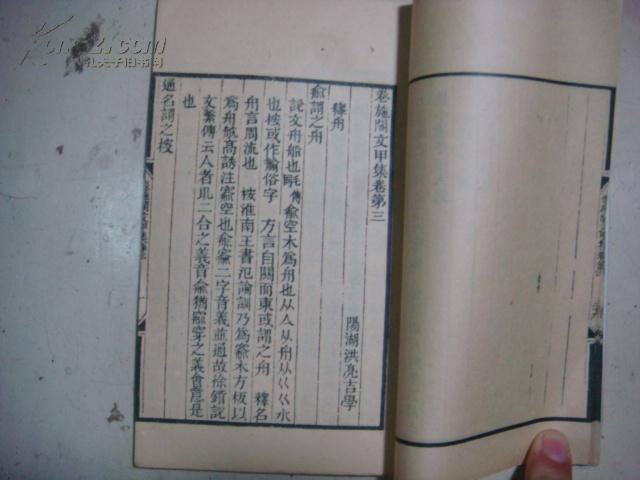 卷施閣文甲集卷第三
陽湖洪亮吉學
釋舟
兪謂之舟
說文舟船也 兪空木爲舟也从亼从舟从巜巜水
也 按或作 俗字 方言自關而東或謂之舟 釋名
舟言周流也 按淮南王書氾論訓乃爲窬木方板以
爲舟航高誘注窬空也兪窬二字音義並通故徐鍇說
文繫傳云亼者 二合之義音兪猶 穿之義會意是
也
通名謂之
孔夫子旧书网